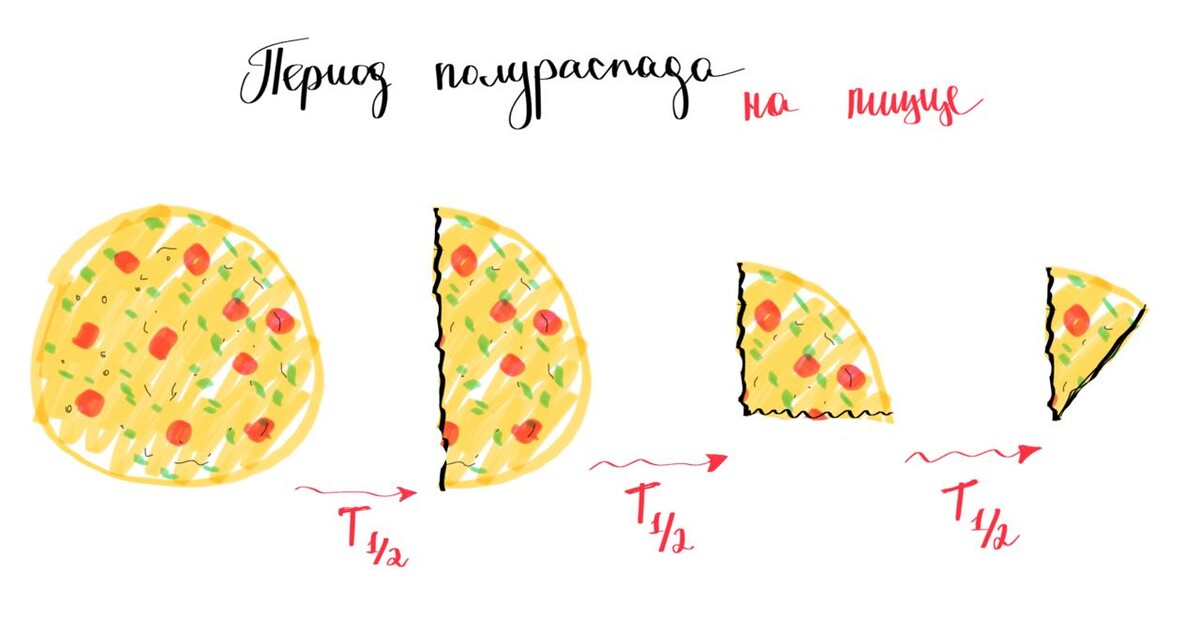 Период полураспада на пицце
T1/2
T1/2
T1/2